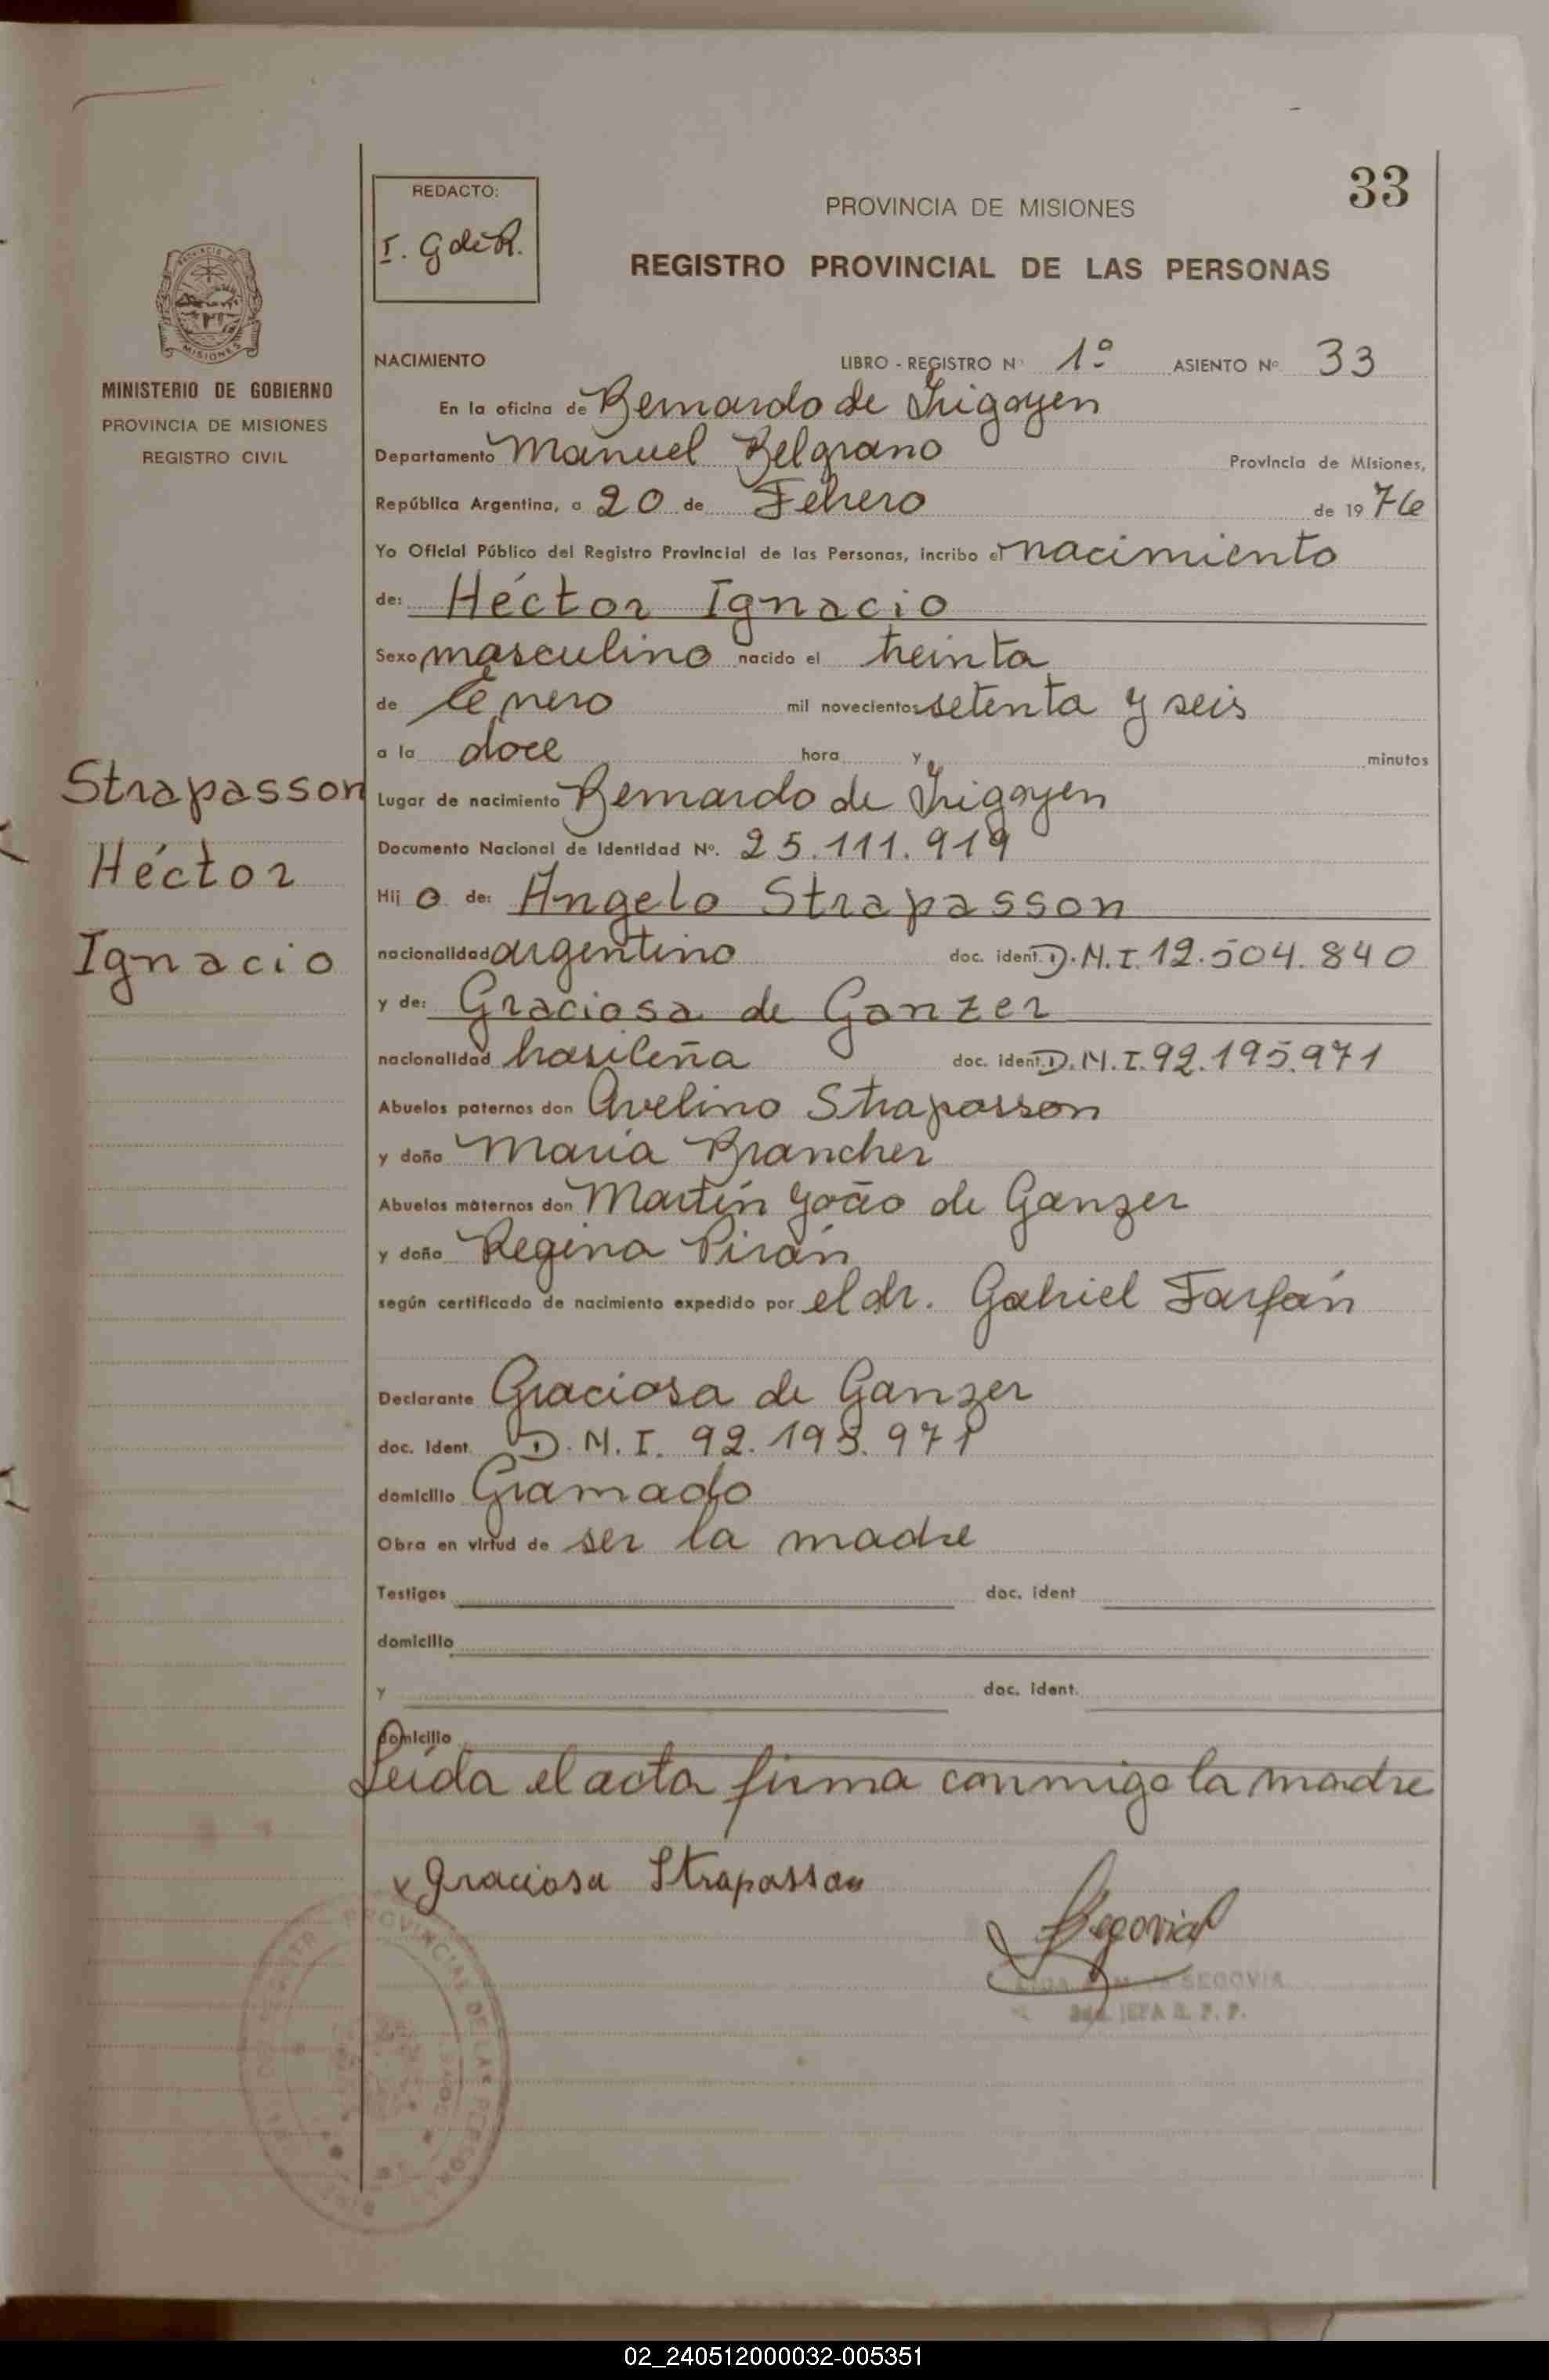 33
REDACTO:
I. G de R.
PROVINCIA DE MISIONES
REGISTRO PROVINCIAL DE LAS PERSONAS
MISIONES
MINISTERIO DE GOBIERNO
PROVINCIA DE MISIONES
REGISTRO CIVIL
NACIMIENTO LIBRO - REGISTRO Nº 1º ASIENTO Nº 33
En la oficina de Bernardo de Irigoyen
Departamento Manuel Belgrano Provincia de Misiones,
República Argentina, a 20 de Febrero de 1976
Yo Oficial Público del Registro Provincial de las Personas, incribo el nacimiento
de: Héctor Ignacio
Sexo masculino nacido el treinta
de Enero mil novecientos setenta y seis
a la doce hora y minutos
Strapasson
Héctor
Ignacio
Lugar de nacimiento Bernardo de Irigoyen
Documento Nacional de Identidad Nº. 25.111.919
Hijo de: Angelo Strapasson
nacionalidad argentino doc. ident. D.N.I. 12.504.840
y de: Graciosa de Ganzer
nacionalidad brasileña doc. ident. D.N.I. 92.195.971
Abuelos paternos don Avelino Strapasson
y doña María Brancher
Abuelos maternos don Martín João de Ganzer
y doña Regina Pirán
según certificado de nacimiento expedido por el dr. Gabriel Farfán
Declarante Graciosa de Ganzer
doc. Ident. D.N.I. 92.195.971
domicilio Gramado
Obra en virtud de ser la madre
Testigos doc. ident
domicilio
y doc. ident.
domicilio
Leída el acta firma conmigo la madre
x Graciosa Strapasson
Segovia
SEGOVIA
JEFA R. P. P.
PROVINCIAL DE LAS PERSONAS
02_240512000032-005351